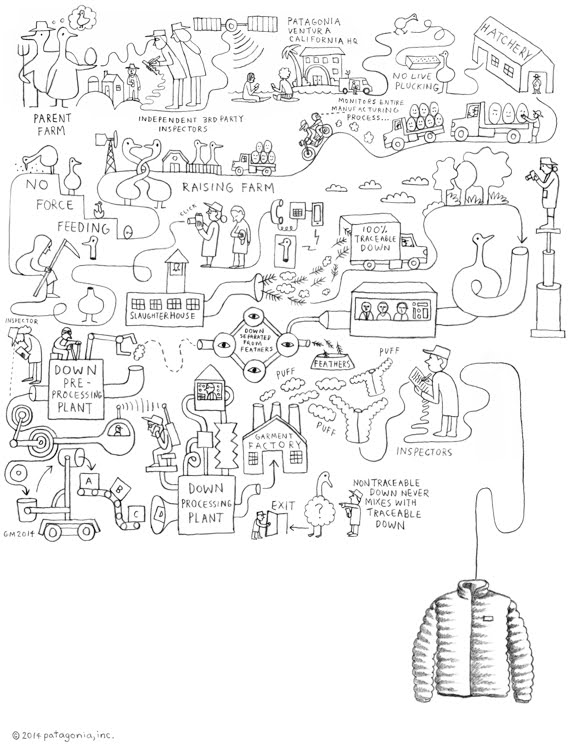 PATAGONIA
VENTURA
CALIFORNIA HQ
HATCHERY
NO LIVE
PLUCKING
PARENT
FARM
INDEPENDENT 3RD PARTY
INSPECTORS
MONITORS ENTIRE
MANUFACTURING
PROCESS...
NO
FORCE
FEEDING
RAISING FARM
CLICK
100%
TRACEABLE
DOWN
SLAUGHTERHOUSE
INSPECTOR
DOWN
SEPARATED
FROM
FEATHERS
FEATHERS
PUFF
PUFF
PUFF
DOWN
PRE-
PROCESSING
PLANT
GARMENT
FACTORY
INSPECTORS
A
B
C
D
DOWN
PROCESSING
PLANT
EXIT
?
NONTRACEABLE
DOWN NEVER
MIXES WITH
TRACEABLE
DOWN
GM2014
© 2014 patagonia, inc.